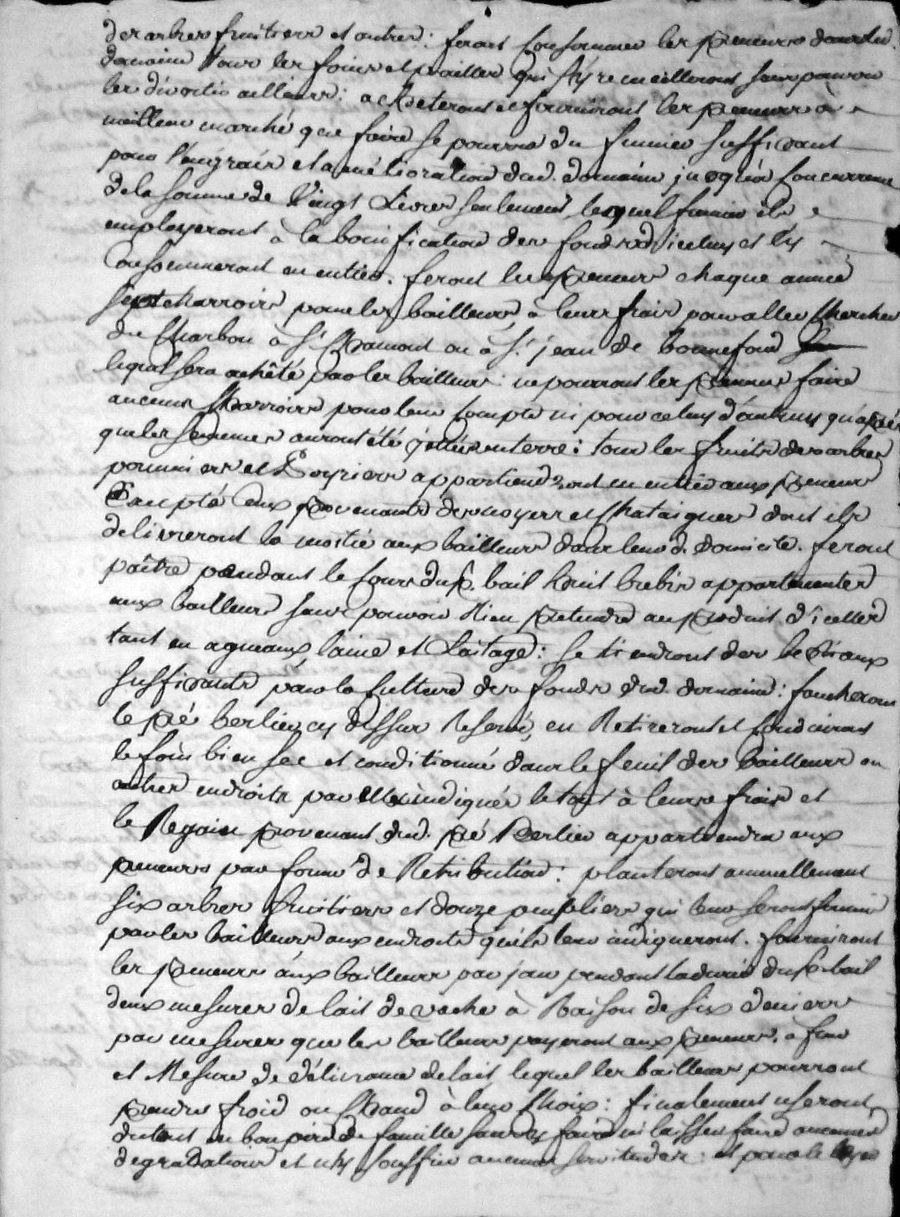 des arbres fruitiers et autres : feront consommer les preneurs dans led.
domaine tous les foins et pailles qui s'y recueilleront sans pouvoir
les divertir ailleurs : achèteront et fourniront les preneurs à
meilleur marché que faire se pourra du fumier suffisant
pour l'engrais et amélioration dud. domaine jusqu'à concurrence
de la somme de vingt livres seulement lequel fumier ils
employeront à la bonification des fonds d'icelluy et l'y
consommeront en entier. feront les preneurs chaque année
sept charroirs pour les bailleurs, à leurs frais pour aller chercher
du charbon à St. Chamont ou à St. jean de bonnefond
lequel sera achêté par les bailleurs : ne pourront les preneurs faire
aucuns charroirs pour leur compte ni pour celuy d'autruy qu'après
que les semences auront été jettées en terre : tous les fruits des arbres
pommiers et poyriers appartiendront en entier aux preneurs
Excepté ceux provenants des noyers et chataigners dont ils
delivreront la moitié aux bailleurs dans leurd. domicile. feront
paître pendant le cours dup. bail huit brebis appartenantes
aux bailleurs sans pouvoir rien pretendre au produit d'icelles
tant en agneaux laine et laitage : se tiendront des bestiaux
suffisants pour la culture des fonds dud. domaine : faucheront
le pré berlieu cy dessus reservé, en retireront et conduiront
le foin bien sec et conditionné dans le fenil des bailleurs ou
autres endroits par eux indiqués le tout à leurs frais et
le Regain provenant dud. pré Berlieu appartiendra aux
preneurs par forme de Retribution : planteront annuellement
six arbres fruitiers et douze peupliers qui leur seront fournis
par les bailleurs aux endroits qu'ils leur indiqueront. fourniront
les preneurs aux bailleurs par jour pendant la durée dup. bail
deux mesures de lait de vache à Raison de six deniers
par mesures que les bailleurs payeront aux preneurs, a fur
et Mesure de délivrance de lait lequel les bailleurs pourront
prendre froid ou chaud à leur choix : finalement useront
du tout en bon père de famille sans y faire ni laisser faire aucunes
degradations et n'y souffrir aucunes servitudes : et pour le